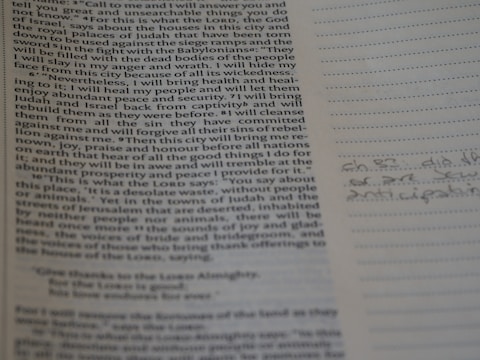 name: ³ "Call to me and I will answer you and
tell you great and unsearchable things you do
not know." ⁴ For this is what the LORD, the God
of Israel, says about the houses in this city and
the royal palaces of Judah that have been torn
down to be used against the siege ramps and the
sword ⁵ in the fight with the Babylonians: "They
will be filled with the dead bodies of the people
I will slay in my anger and wrath. I will hide my
face from this city because of all its wickedness.
⁶ "'Nevertheless, I will bring health and heal-
ing to it; I will heal my people and will let them
enjoy abundant peace and security. ⁷ I will bring
Judah and Israel back from captivity and will
rebuild them as they were before. ⁸ I will cleanse
them from all the sin they have committed
against me and will forgive all their sins of rebel-
lion against me. ⁹ Then this city will bring me re-
nown, joy, praise and honour before all nations
on earth that hear of all the good things I do for
it; and they will be in awe and will tremble at the
abundant prosperity and peace I provide for it.'
¹⁰ "This is what the LORD says: "You say about
this place, 'It is a desolate waste, without people
or animals.' Yet in the towns of Judah and the
streets of Jerusalem that are deserted, inhabited
by neither people nor animals, there will be
heard once more ¹¹ the sounds of joy and glad-
ness, the voices of bride and bridegroom, and
the voices of those who bring thank offerings to
the house of the LORD, saying,
"Give thanks to the LORD Almighty,
for the LORD is good;
his love endures for ever."
For I will remove the fortunes of the land as they
were before,' says the LORD.
"This is what the LORD Almighty says: "In this
place, desolate and without people or animals –
ch 33: did th
or are Jew
anticipatin